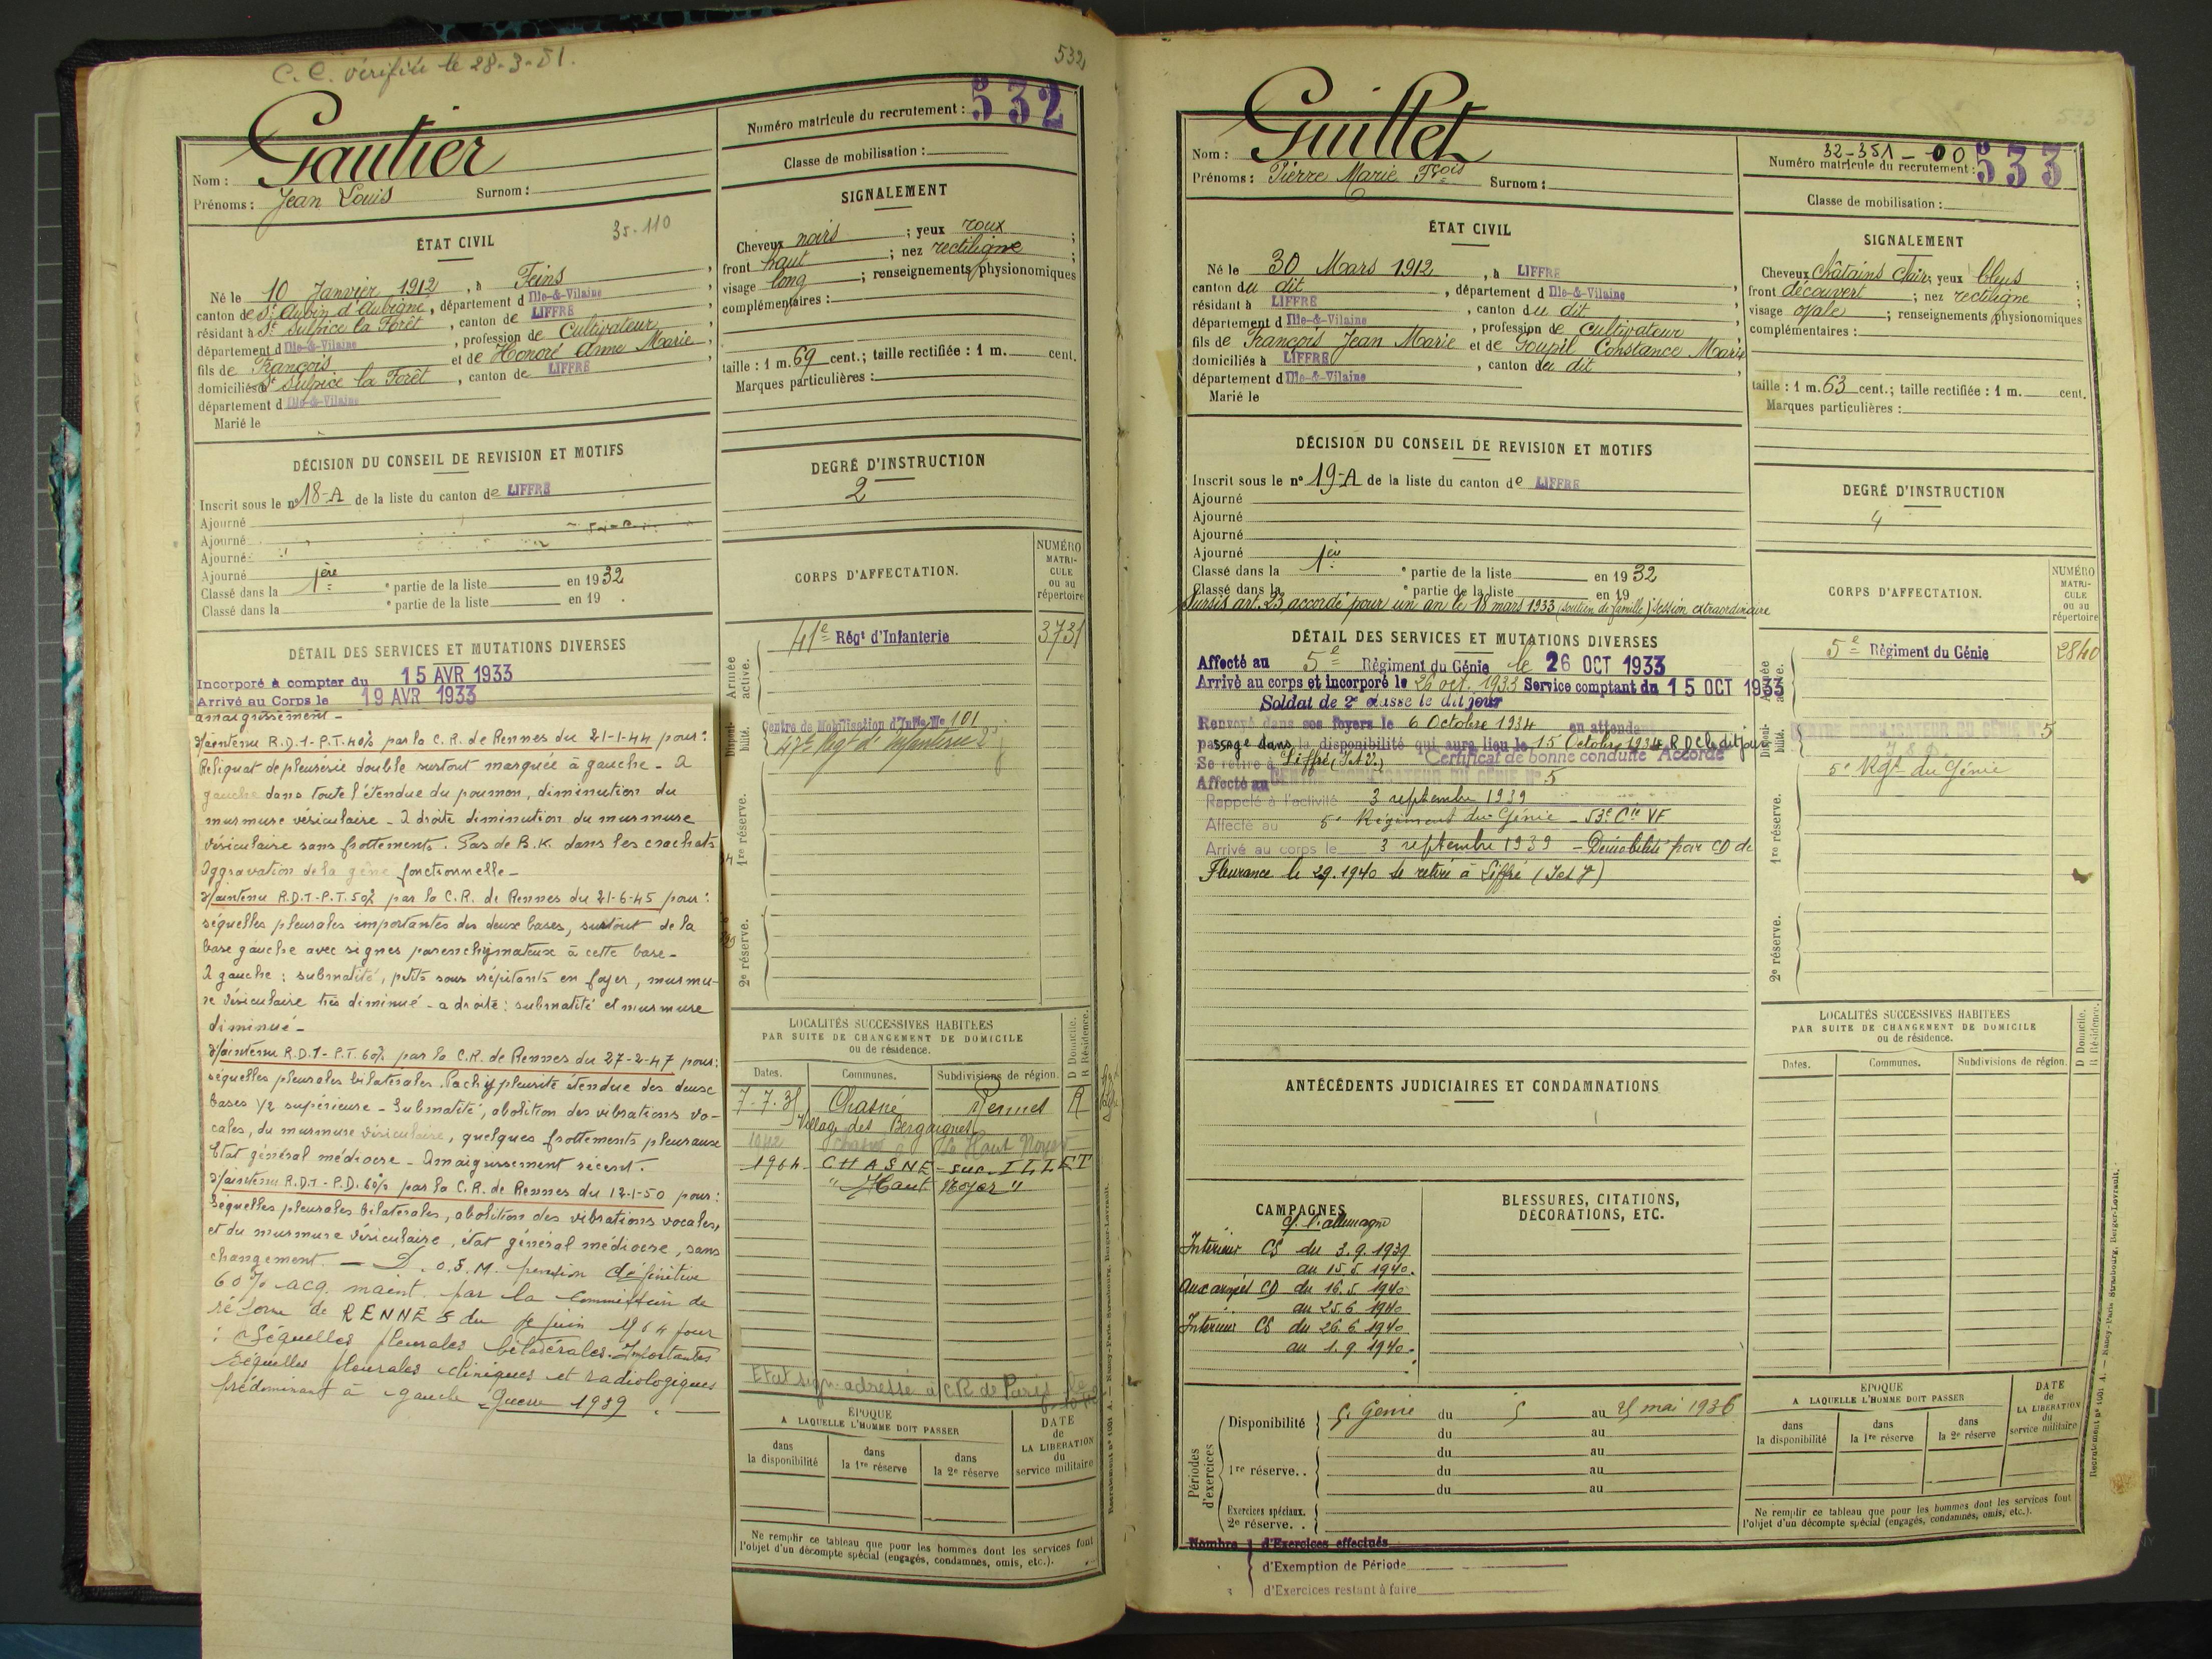 C.C. vérifié le 28-3-51.
532
Nom : Gautier
Prénoms : Jean Louis Surnom :
Numéro matricule du recrutement : 532
Classe de mobilisation :
ÉTAT CIVIL
35-110
Né le 10 Janvier 1912, à Feins,
canton de St Aubin d'Aubigné, département d Ille-&-Vilaine
résidant à St Sulpice la Forêt, canton de LIFFRÉ
département d Ille-&-Vilaine, profession de Cultivateur,
fils de François et de Honoré Anne Marie,
domiciliés à St Sulpice la Forêt, canton de LIFFRÉ,
département d Ille-&-Vilaine
Marié le
SIGNALEMENT
Cheveux noirs ; yeux roux ;
front haut ; nez rectiligne ;
visage long ; renseignements physionomiques
complémentaires :
taille : 1 m. 69 cent.; taille rectifiée : 1 m. cent.
Marques particulières :
DÉCISION DU CONSEIL DE REVISION ET MOTIFS
Inscrit sous le n° 18-A de la liste du canton de LIFFRÉ
Ajourné
Ajourné
Ajourné
Ajourné
Classé dans la 1ère e partie de la liste en 1932
Classé dans la e partie de la liste en 19 .
DEGRÉ D'INSTRUCTION
2
DÉTAIL DES SERVICES ET MUTATIONS DIVERSES
Incorporé à compter du 15 AVR 1933
Arrivé au Corps le 19 AVR 1933
amaigrissement -
Maintenu R.D.1-P.T. 40% par la C.R. de Rennes du 21-1-44 pour :
Reliquat de pleurésie double surtout marquée à gauche - A
gauche dans toute l'étendue du poumon, diminution du
murmure vésiculaire - A droite diminution du murmure
vésiculaire sans frottements. Pas de B.K. dans les crachats
Aggravation de la gêne fonctionnelle -
Maintenu R.D.1-P.T. 50% par la C.R. de Rennes du 21-6-45 pour :
séquelles pleurales importantes des deux bases, surtout de la
base gauche avec signes parenchymateux à cette base -
A gauche : submatité, petits sous crépitants en foyer, murmu-
re vésiculaire très diminué - a droite : submatité et murmure
diminué -
Maintenu R.D.1 - P.T. 60% par la C.R. de Rennes du 27-2-47 pour :
séquelles pleurales bilatérales. Pachypleurite étendue des deux
bases 1/2 supérieure - Submatité, abolition des vibrations vo-
cales, du murmure vésiculaire, quelques frottements pleuraux
Etat général médiocre - Amaigrissement récent.
Maintenu R.D.1 - P.D. 60% par la C.R. de Rennes du 12-1-50 pour :
Séquelles pleurales bilatérales, abolition des vibrations vocales,
et du murmure vésiculaire, état général médiocre, sans
changement. — D.O.S.M. pension définitive
60% acq. maint. par la Commission de
réforme de RENNES du juin 1964 pour
: Séquelles pleurales bilatérales. Importantes
séquelles pleurales cliniques et radiologiques
prédominant à gauche - Guerre 1939.
CORPS D'AFFECTATION.
NUMÉRO MATRICULE ou au répertoire
Armée active.
41e Régt d'Infanterie 3731
Disponibilité.
Centre de Mobilisation d'Infie No 101
47e Régt d'Infanterie
1re réserve.
2e réserve.
LOCALITÉS SUCCESSIVES HABITÉES
PAR SUITE DE CHANGEMENT DE DOMICILE
ou de résidence.
Dates. Communes. Subdivisions de région. D Domicile. R Résidence.
7-7-35 Chasné Rennes R
Village des Bergaignes
1942 Chasné le Haut Noyer
1964 - CHASNÉ - sur - ILLET
"Haut Noyer"
Etat sign. adressé à C.R. de Paris le
ÉPOQUE
A LAQUELLE L'HOMME DOIT PASSER
dans la disponibilité dans la 1re réserve dans la 2e réserve
DATE de LA LIBÉRATION du service militaire
Ne remplir ce tableau que pour les hommes dont les services font
l'objet d'un décompte spécial (engagés, condamnés, omis, etc.).
Recrutement n° 1001 A. — Nancy-Paris-Strasbourg, Berger-Levrault.
533
Nom : Guillet
Prénoms : Pierre Marie Fçois Surnom :
32-351-00
Numéro matricule du recrutement : 533
Classe de mobilisation :
ÉTAT CIVIL
Né le 30 Mars 1912, à LIFFRÉ
canton du dit, département d Ille-&-Vilaine,
résidant à LIFFRÉ, canton du dit
département d Ille-&-Vilaine, profession de Cultivateur,
fils de François Jean Marie et de Goupil Constance Marie
domiciliés à LIFFRÉ, canton du dit,
département d Ille-&-Vilaine
Marié le
SIGNALEMENT
Cheveux châtains clair ; yeux bleus ;
front découvert ; nez rectiligne ;
visage ovale ; renseignements physionomiques
complémentaires :
taille : 1 m. 63 cent.; taille rectifiée : 1 m. cent.
Marques particulières :
DÉCISION DU CONSEIL DE REVISION ET MOTIFS
Inscrit sous le n° 19-A de la liste du canton de LIFFRÉ
Ajourné
Ajourné
Ajourné
Ajourné
Classé dans la 1ère e partie de la liste en 1932
Classé dans la e partie de la liste en 19
Sursis art. 23 accordé pour un an le 18 mars 1933 (soutien de famille) session extraordinaire
DEGRÉ D'INSTRUCTION
4
DÉTAIL DES SERVICES ET MUTATIONS DIVERSES
Affecté au 5e Régiment du Génie le 26 OCT 1933
Arrivé au corps et incorporé le 26 oct. 1933 Service comptant du 15 OCT 1933
Soldat de 2e classe le dit jour
Renvoyé dans ses foyers le 6 Octobre 1934 en attendant
passage dans la disponibilité qui aura lieu le 15 Octobre 1934 R D C le dit jour
Se retire à Liffré (I et V.) Certificat de bonne conduite Accordé
Affecté au CENTRE MOBILISATEUR DU GÉNIE N° 5
Rappelé à l'activité 3 septembre 1939
Affecté au 5e Régiment du Génie - 53e Cie VF
Arrivé au corps le 3 septembre 1939 - Démobilisé par CD de
Fleurance le 2.9.1940 se retire à Liffré (I et V)
CORPS D'AFFECTATION.
NUMÉRO MATRICULE ou au répertoire
Armée active.
5e Régiment du Génie 2840
Disponibilité.
CENTRE MOBILISATEUR DU GÉNIE N° 5
5e Rgt du Génie
1re réserve.
2e réserve.
LOCALITÉS SUCCESSIVES HABITÉES
PAR SUITE DE CHANGEMENT DE DOMICILE
ou de résidence.
Dates. Communes. Subdivisions de région. D Domicile. R Résidence.
ANTÉCÉDENTS JUDICIAIRES ET CONDAMNATIONS
CAMPAGNES
c/ l'allemagne
Intérieur CS du 3.9.1939
au 15.5.1940.
Aux armées CD du 16.5.1940
au 25.6.1940
Intérieur CS du 26.6.1940
au 1.9.1940.
BLESSURES, CITATIONS,
DÉCORATIONS, ETC.
Périodes d'exercices
Disponibilité 5e Génie du 5 au 25 mai 1936
du au
1re réserve.. du au
du au
du au
Exercices spéciaux.
2e réserve. .
Nombre d'Exercices effectués
d'Exemption de Période
d'Exercices restant à faire
ÉPOQUE
A LAQUELLE L'HOMME DOIT PASSER
dans la disponibilité dans la 1re réserve dans la 2e réserve
DATE de LA LIBÉRATION du service militaire
Ne remplir ce tableau que pour les hommes dont les services font
l'objet d'un décompte spécial (engagés, condamnés, omis, etc.).
Recrutement n° 1001 A. — Nancy-Paris-Strasbourg, Berger-Levrault.